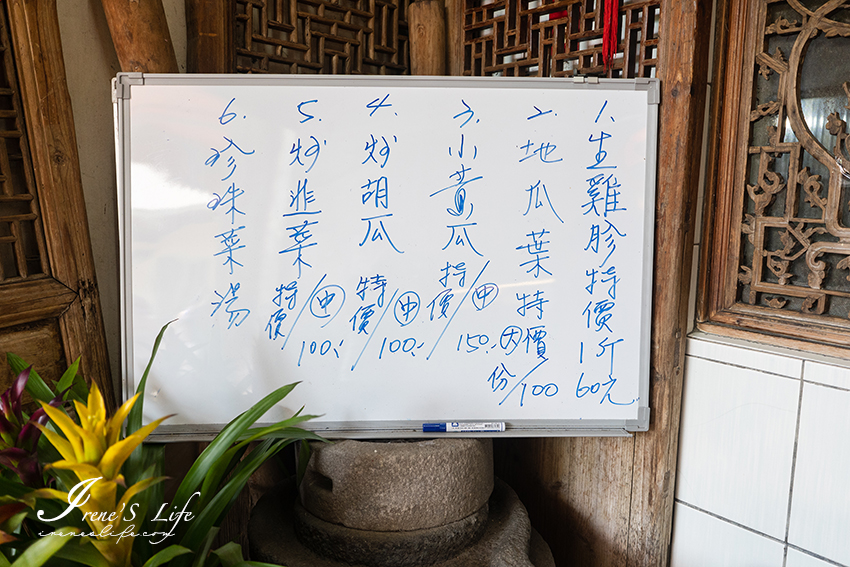 1. 生雞胗特價1斤60元
2. 地瓜葉特價大份/100
3. 小黃瓜特價/中150.
4. 炒胡瓜特價/中100.
5. 炒韭菜特價/中100.
6. 珍珠菜湯
Irene'S Life
ireneslife.com